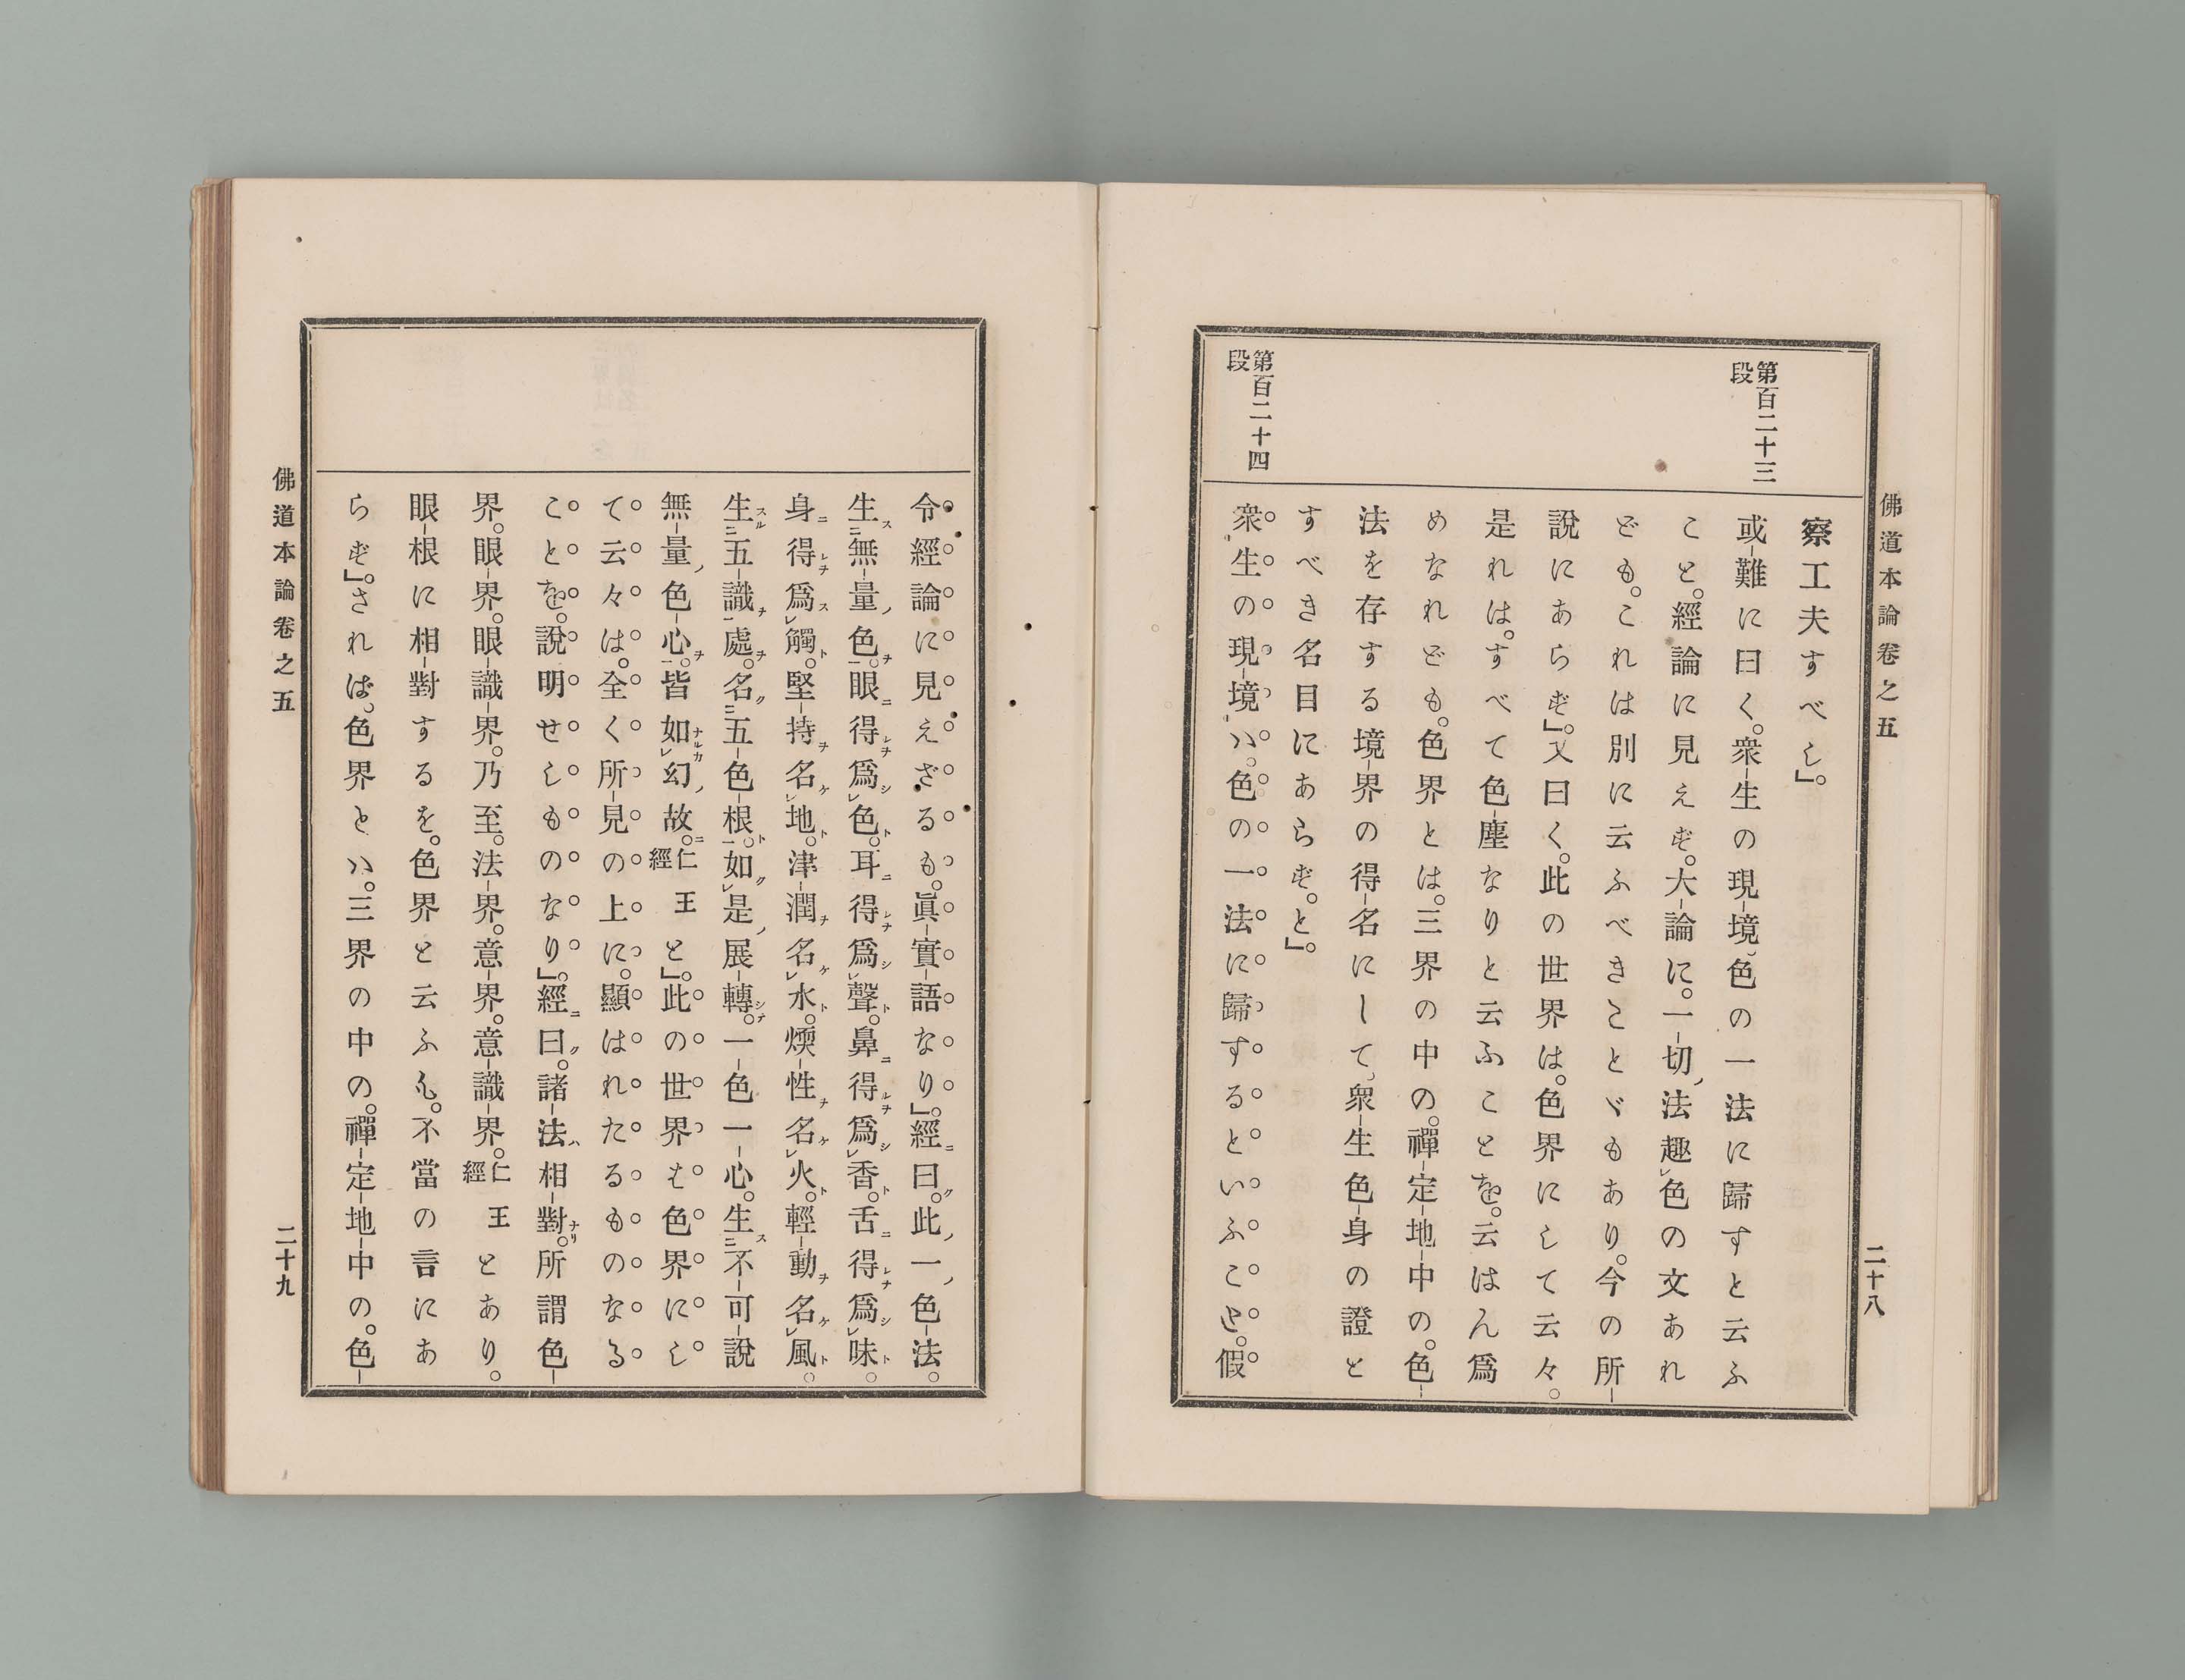 佛道本論卷之五
二十八
第百二十三
段
第百二十四
段
察工夫すべし」。
或難に曰く。衆生の現境、色の一法に歸すと云ふ
こと。經論に見えず。大論に。一切ノ法趣レ色の文あれ
ども。これは別に云ふべきことゞもあり。今の所
說にあらず」。又曰く。此の世界は。色界にして云々。
是れは。すべて色塵なりと云ふことを。云はん爲
めなれども。色界とは。三界の中の。禪定地中の。色
法を存する境界の得名にして、衆生色身の證と
すべき名目にあらず。と」。
衆生の現境ハ。色の一法に歸すといふこと。假
令經論に見えざるも。眞實語なり」。經ニ曰ク。此ノ一ノ色法。
生ス二無量ノ色ヲ一。眼ニ得レヲ爲シレ色ト。耳ニ得レヲ爲シレ聲ト。鼻ニ得レヲ爲シレ香ト。舌ニ得レヲ爲シレ味ト。
身ニ得レヲ爲スレ觸ト。堅持ヲ名ケレ地ト。津潤ヲ名ケレ水ト。煗性ヲ名ケレ火ト。輕動ヲ名ケレ風ト。
生スル二五識ヲ一處ヲ。名ク二五色根ト一。如クレ是ノ展轉シテ。一色一心。生ス二不可說
無量ノ色心ヲ一。皆如ナルカレ幻ノ故ニ。仁王經と」。此の世界を色界にし
て云々は。全く所見の上に。顯はれたるものなる
ことを。說明せしものなり」。經ニ曰ク。諸法ハ相對ナリ。所謂色
界。眼界。眼識界。乃至。法界。意界。意識界。仁王經とあり。
眼根に相對するを。色界と云ふも。不當の言にあ
らず」。されば。色界とハ。三界の中の。禪定地中の。色
佛道本論卷之五
二十九